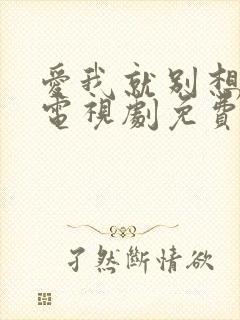 愛我就別想
電視劇免費
孑然斷情欲